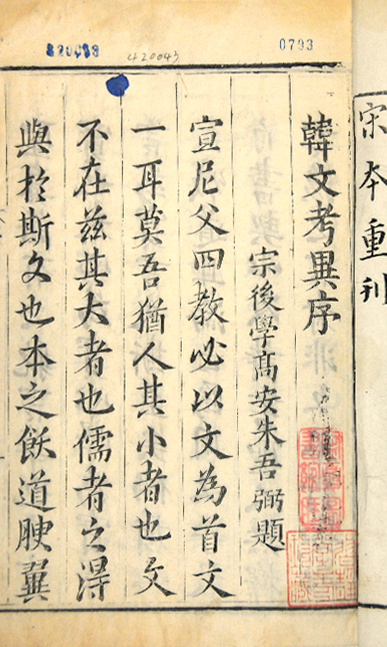 820088
420043
0793
宋本重刋
韓文考異序
宗後學髙安朱吾弼題
宣尼父四教必以文為首文
一耳莫吾猶人其小者也文
不在兹其大者也儒者之淂
與扵斯文也本之飫道腴翼